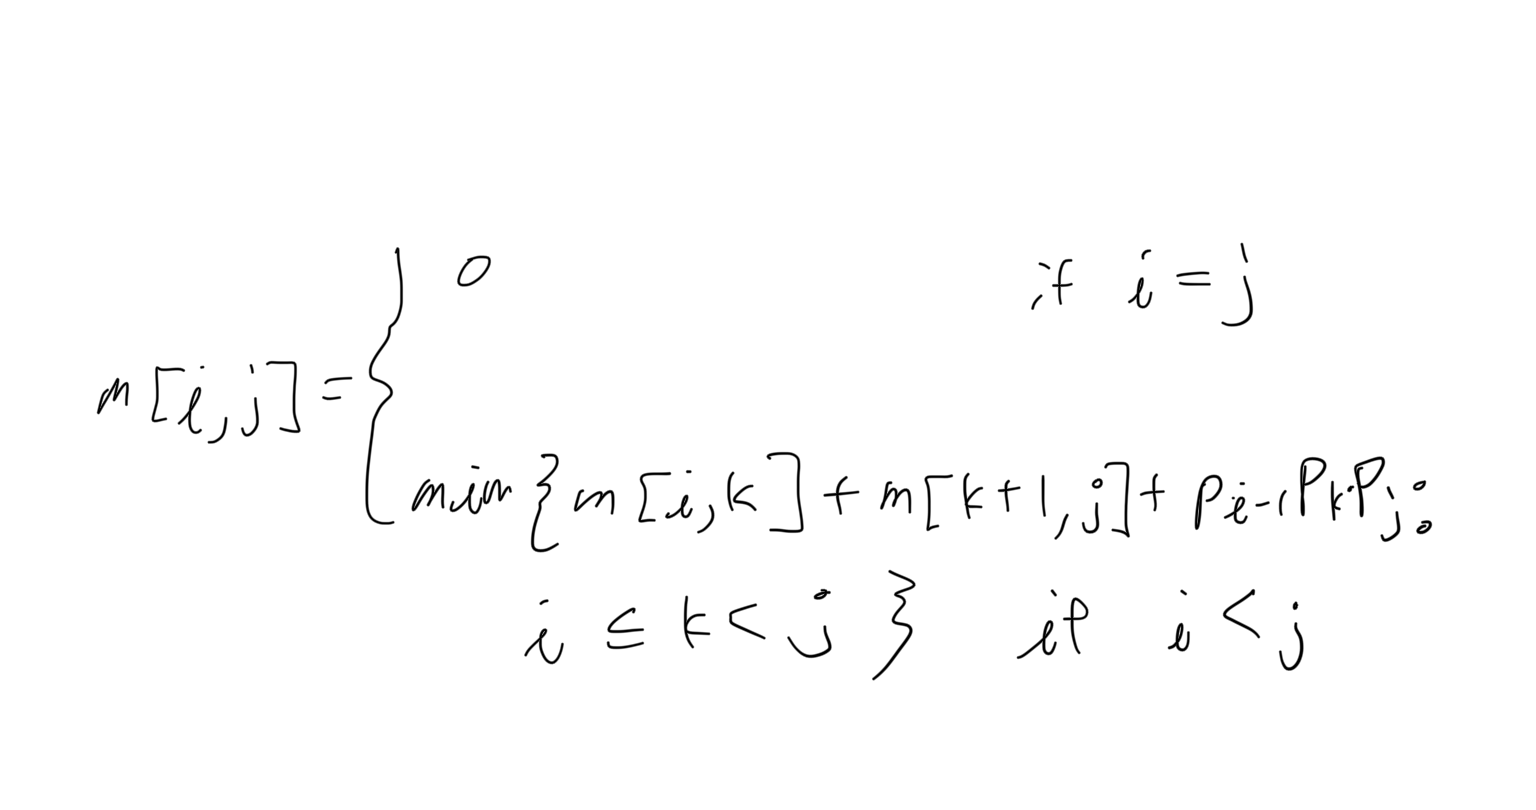 0 if i = j
m[i,j] = {
min{ m[i,k] + m[k+1,j] + p_{i-1} p_k p_j :
i ≤ k < j } if i < j